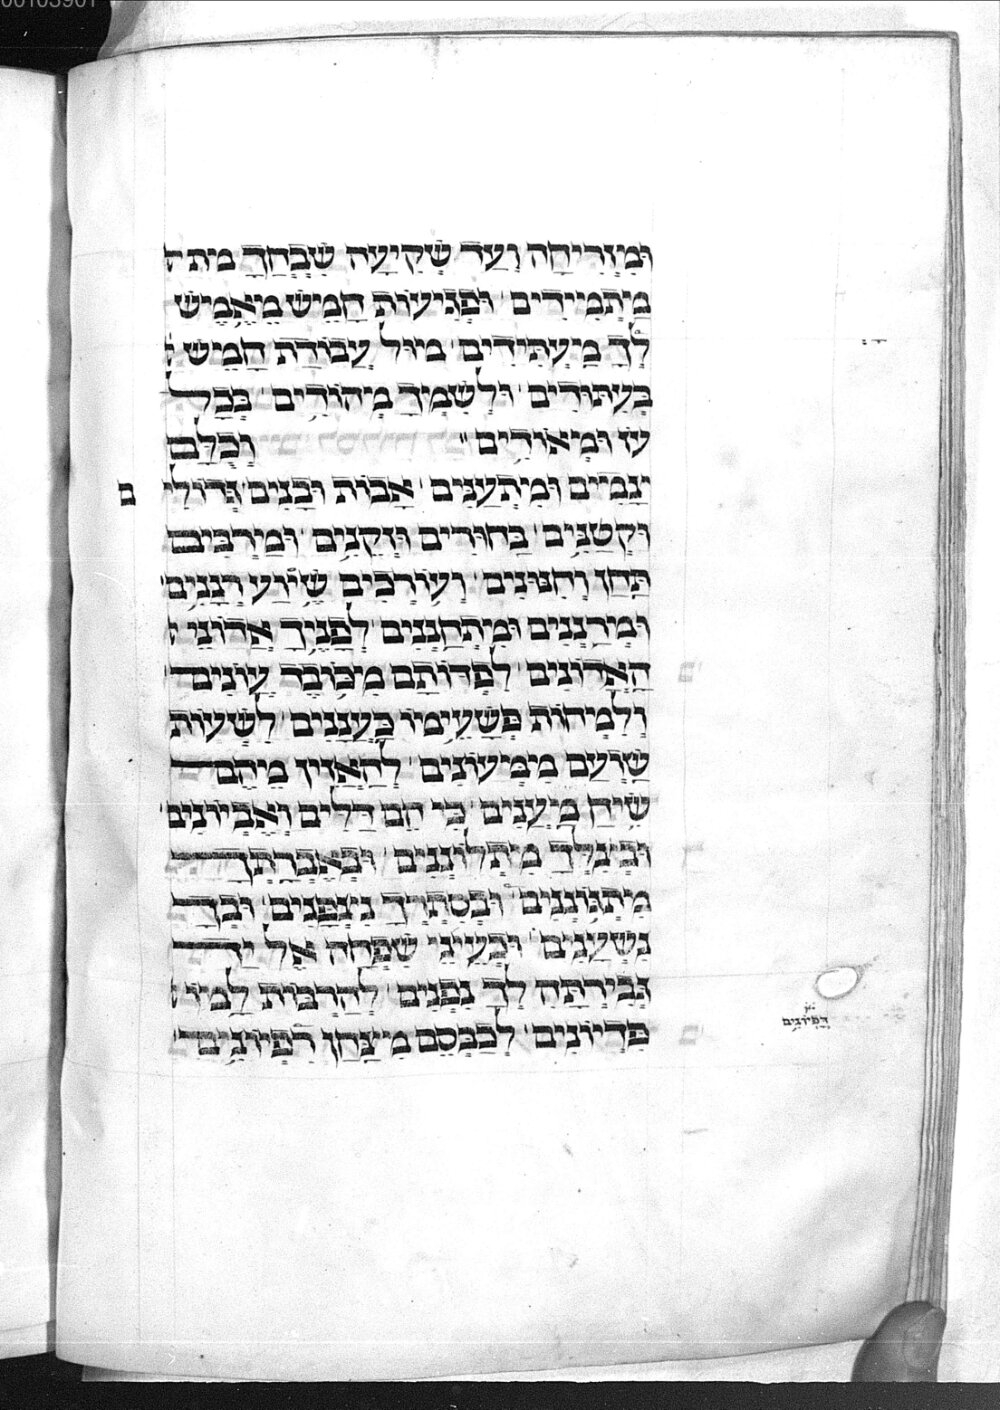 00103901
וּמִזְּרִיחָה וְעַד שְׁקִיעָה שִׁבְחֲךָ מת ה
מַתְמִידִים וּפְגִיעוֹת חָמֵשׁ מֵאֶמֶשׁ
לְךָ מַעֲתִידִים מיול עֲבוֹדַת חָמֵשׁ
בַּעֲתוּרִים וּלְשִׁמְךָ מְהוֹדִים בְּכָל
עֹז וּמְאוֹדִים וְכֻלָּם
יַנְמִיִים וּמִתְעַנִּים אָבוֹת וּבָנִים גְּדוֹלִי
ם
וּקְטַנִּים בַּחוּרִים וּזְקֵנִים וּמַרְבִּים
תַּחַן וְחִנּוּנִים וְעוֹרְכִים שֶׁוַע רְנָנִים
וּמְרַנְּנִים וּמִתְחַנְּנִים לְפָנֶיךָ אֲדוֹנֵי
הָאֲדוֹנִים לִפְדּוֹתָם מִכּוֹבֶד עֲוֹנִים
וְלִמְחוֹת פְּשָׁעֵימוֹ כַּעֲנָנִים לִשְׁעוֹת
שַׁוְעָם מִמְּעוֹנִים לְהַאֲזִין מֵהֶם
שִׂיחַ מַעֲנִים כִּי הֵם דַּלִּים וְאֶבְיוֹנִים
וּבְצִלְּךָ מִתְלוֹנְנִים וּבְאֶבְרָתְךָ
מִתְגּוֹנְנִים וּבְסִתְרָךְ נִצְפָּנִים וּבְךָ
נִשְׁעָנִים וּכְעֵינֵי שִׁפְחָה אֶל יַד
גְּבִירְתָּהּ לְךָ נִפְנִים לְהַרְבּוֹת לָמוֹ
פִּדְיוֹנִים לְכַבְּסֵם מִצַּחַן רִפְיוֹנִים